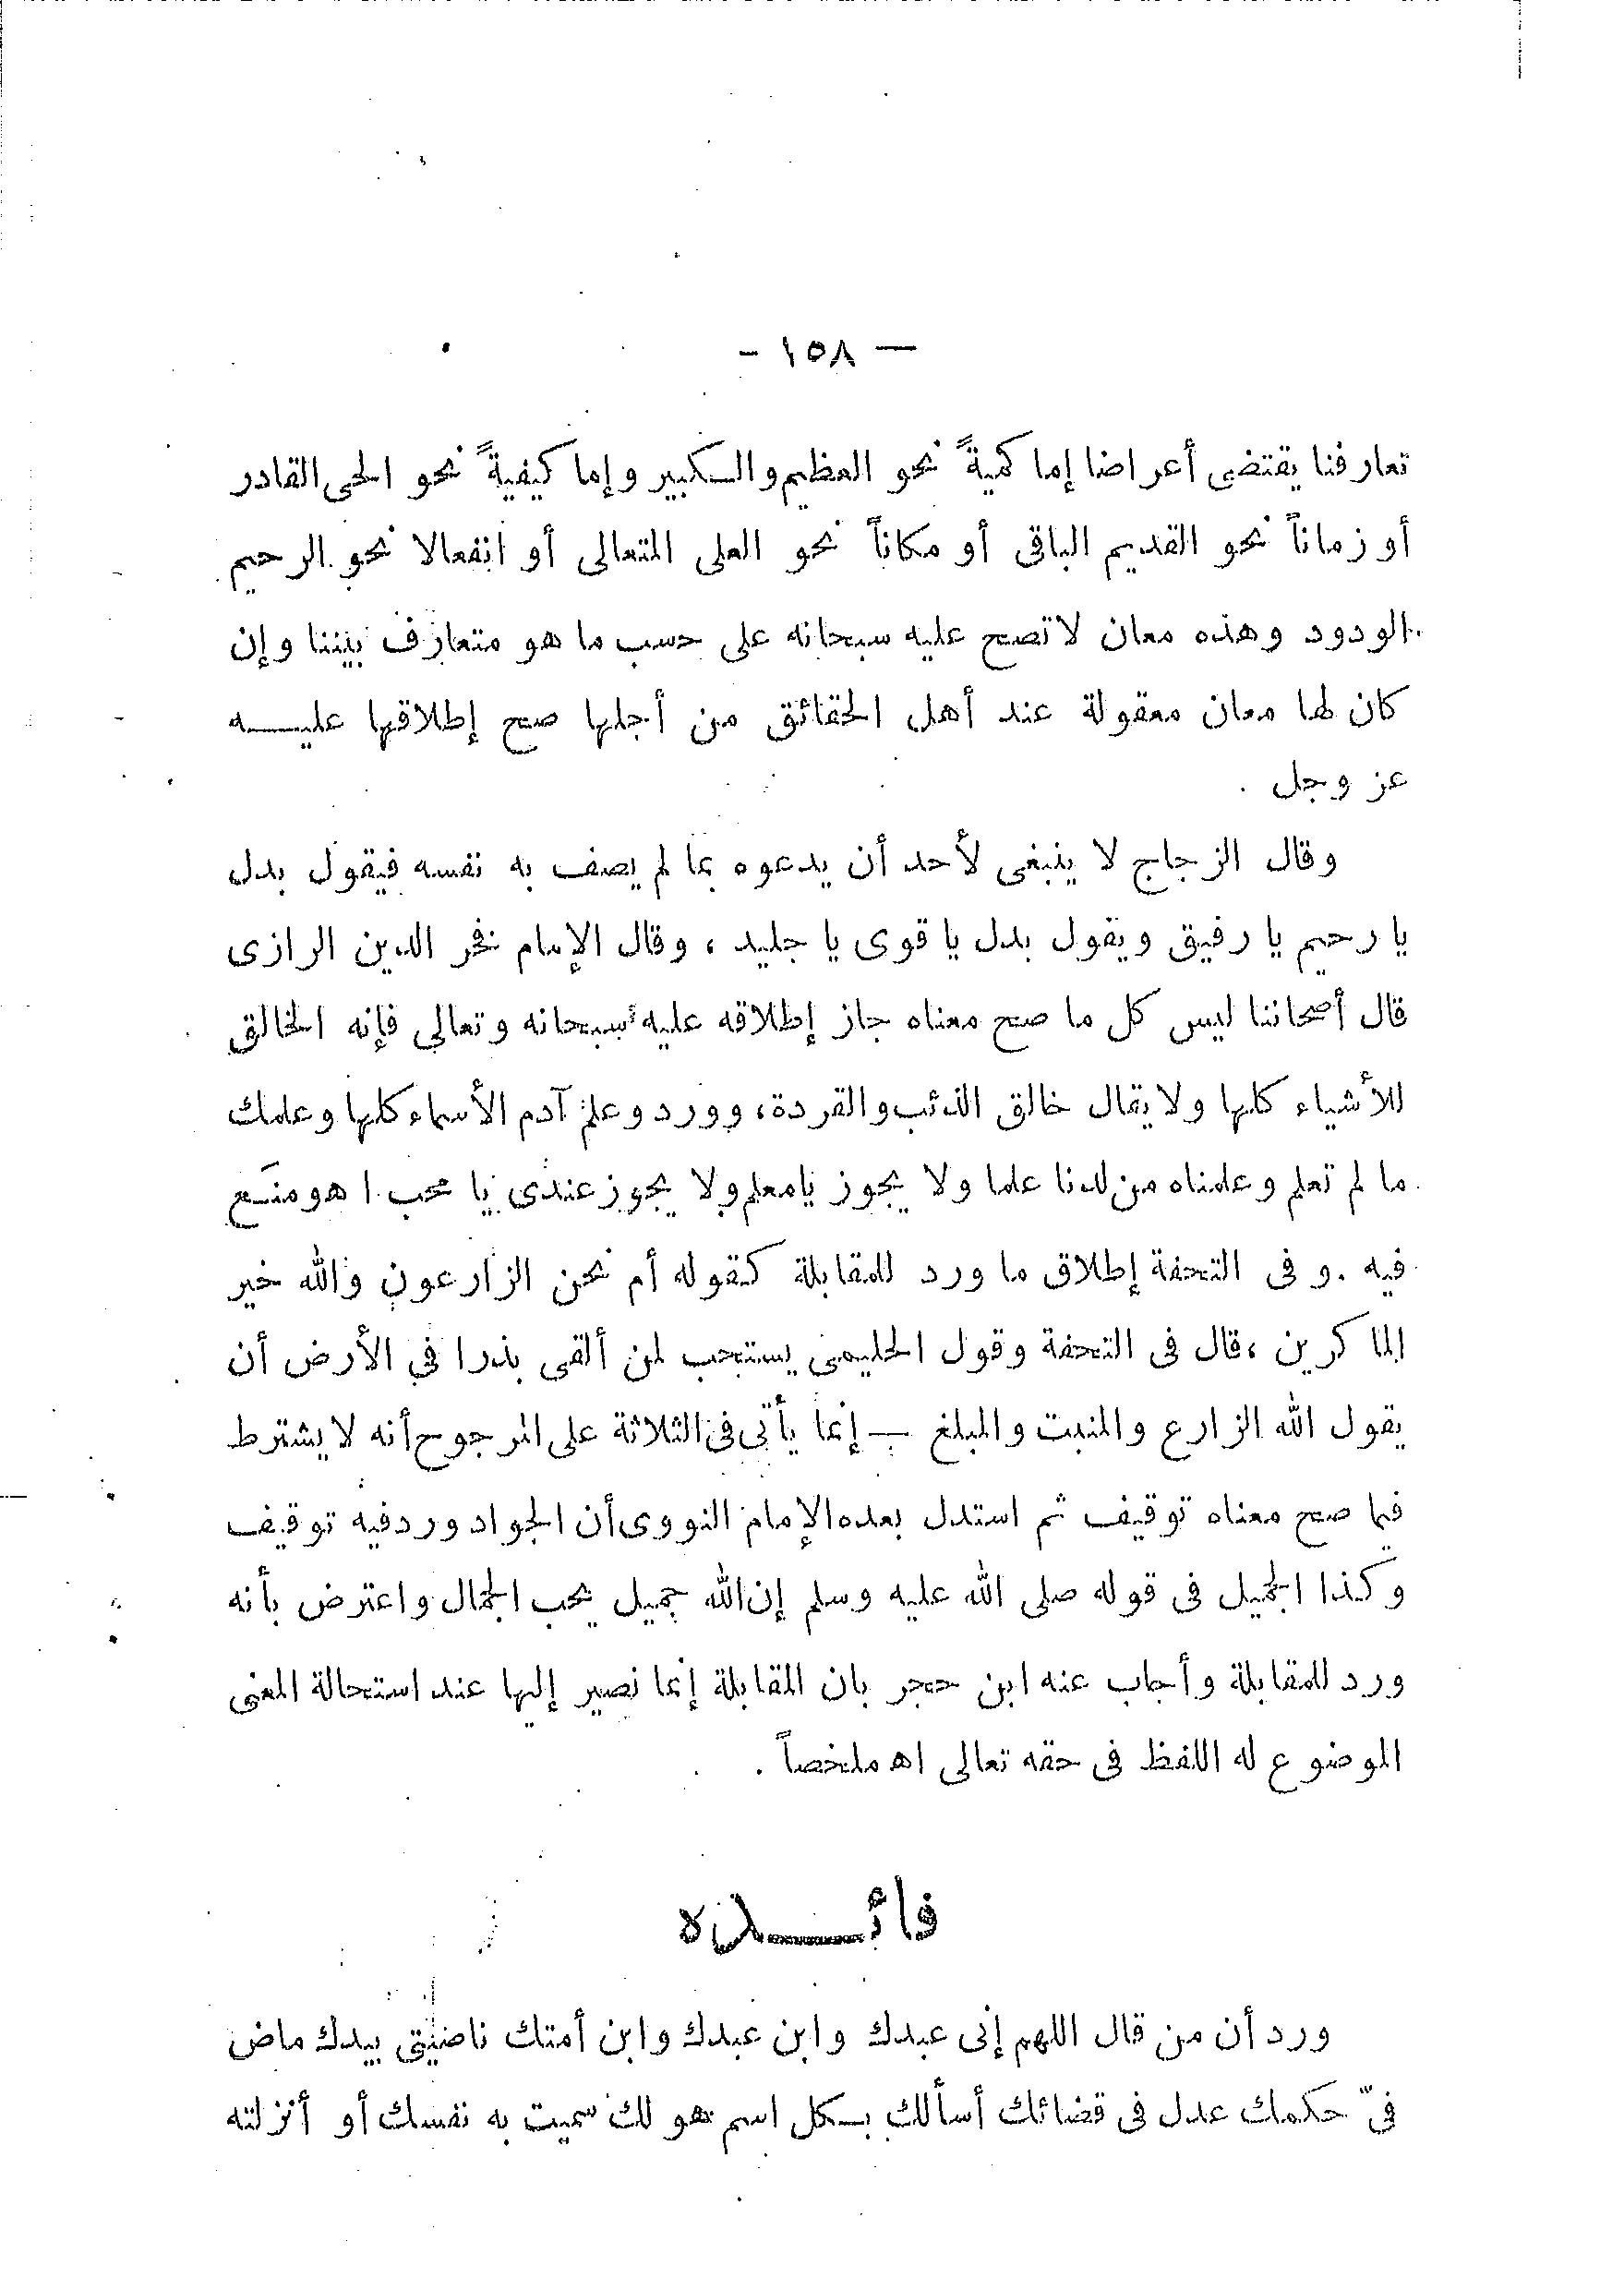 — ١٥٨ -
تعارفنا يقتضى أعراضا إما كميةً نحو العظيم والكبير وإما كيفيةً نحو الحى القادر
أو زماناً نحو القديم الباقى أو مكاناً نحو العلى المتعالى أو انفعالا نحو الرحيم
الودود وهذه معان لا تصح عليه سبحانه على حسب ما هو متعارف بيننا وإن
كان لها معان معقولة عند أهل الحقائق من أجلها صح إطلاقها عليـــه
عز وجل .
وقال الزجاج لا ينبغى لأحد أن يدعوه بما لم يصف به نفسه فيقول بدل
يا رحيم يا رفيق ويقول بدل يا قوى يا جليد ، وقال الإمام فخر الدين الرازى
قال أصحابنا ليس كل ما صح معناه جاز إطلاقه عليه سبحانه وتعالى فإنه الخالق
للأشياء كلها ولا يقال خالق الذئب والقردة، وورد وعلم آدم الأسماء كلها وعلمك
ما لم تعلم وعلمناه من لدنا علما ولا يجوز يا معلم ولا يجوز عندى يا محب ا هو منَع
فيه . و فى التحفة إطلاق ما ورد للمقابلة كقوله أم نحن الزارعون والله خير
الماكرين ، قال فى التحفة وقول الحليمى يستحب لمن ألقى بذرا في الأرض أن
يقول الله الزارع والمنبت والمبلغ — إنما يأتى فى الثلاثة على المرجوح أنه لا يشترط
فيما صح معناه توقيف ثم استدل بعده الإمام النووى أن الجواد ورد فيه توقيف
وكذا الجميل فى قوله صلى الله عليه وسلم إن الله جميل يحب الجمال واعترض بأنه
ورد للمقابلة وأجاب عنه ابن حجر بان المقابلة إنما نصير إليها عند استحالة المعنى
الموضوع له اللفظ فى حقه تعالى اهـ ملخصاً .
فائـــدة
ورد أن من قال اللهم إنى عبدك وابن عبدك وابن أمتك ناصيتى بيدك ماض
فىّ حكمك عدل فى قضائك أسألك بكل اسم هو لك سميت به نفسك أو أنزلته